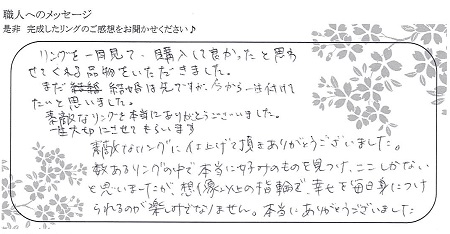 職人へのメッセージ
是非 完成したリングのご感想をお聞かせください♪
リングを一目見て、購入して良かったと思わ
せてくれる品物をいただきました。
まだ 結婚は先ですが、今から一生付けて
たいと思いました。
素敵なリングを本当にありがとうございました。
一生大切にさせてもらいます
素敵なリングに仕上げて頂きありがとうございました。
数あるリングの中で本当に好みのものを見つけ、ここしかない
と思いましたが、想像以上の指輪で、幸せを毎日身につけ
られるのが楽しみでなりません。本当にありがとうございました